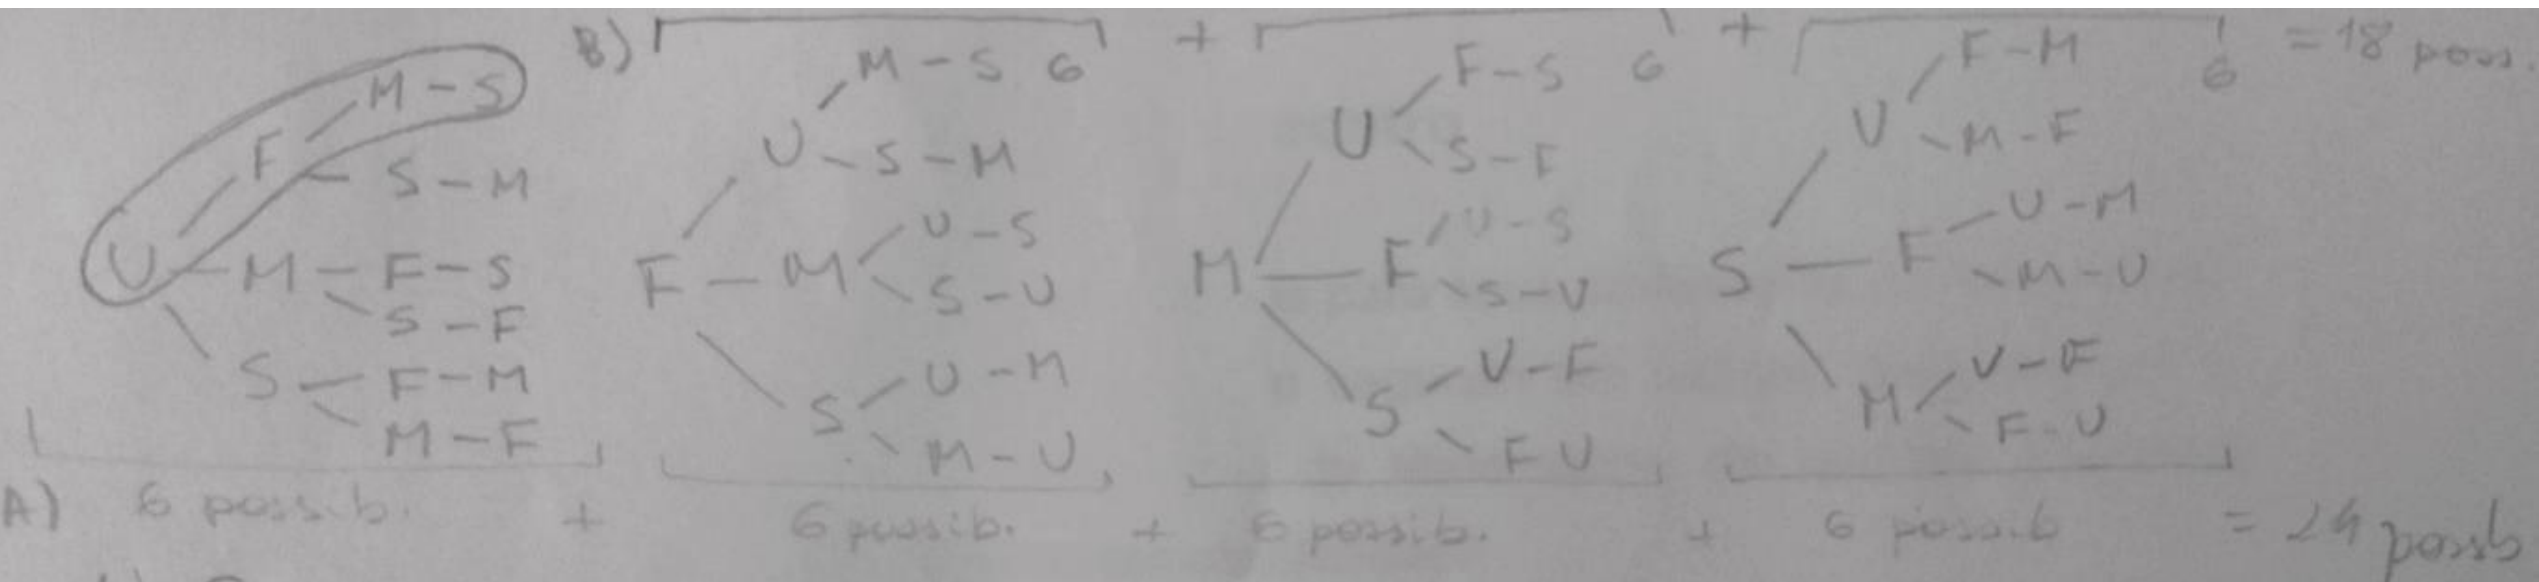 B) 6 + 6 + 6 = 18 poss.
M - S
F
S - M
U - M - F - S
S - F
S - F - M
M - F
M - S
U - S - M
F - M
U - S
S - U
S
U - M
M - U
F - S
U
S - F
M - F
U - S
S - U
S
U - F
F U
F - M
U
M - F
S - F
U - M
M - U
M
U - F
F - U
A) 6 possib. + 6 possib. + 6 possib. + 6 possib = 24 possb